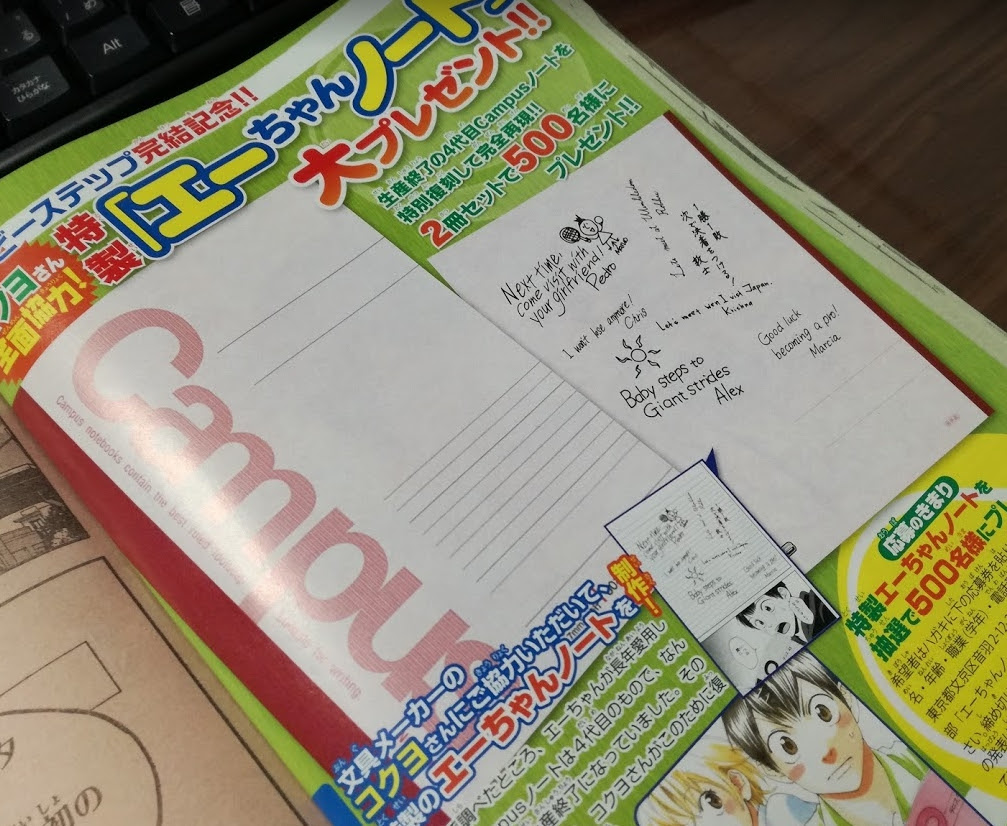 Alt
カタカナ
ひらがな
ビーステップ完結記念!!
特製「エーちゃんノート
大プレゼント!!
生産終了の4代目Campusノートを
特別復刻して完全再現!!
2冊セットで500名様に
プレゼント!!
ヨさん
全面協力!
Campus
Campus notebooks contain the best ruled
for writing.
Next time,
come visit with
your girlfriend!
Pedro
I won't lose anymore!
Chris
Let's meet when I visit Japan.
Krishna
Good luck
becoming a pro!
Marcia
Baby steps to
Giant strides
Alex
文具メーカーの
コクヨさんにご協力いただいて、
型のエーちゃんノートを制作!
調べたところ、エーちゃんが長年愛用し
pusノートは4代目のもので、なん
産終了になっていました。その
コクヨさんがこのために復
Next time,
come visit with
your girlfriend!
Pedro
Baby steps to
Giant strides
Alex
応募のきまり
特製エーちゃんノートを
抽選で500名様にプレ
希望者はハガキに下の応募券を貼
名・年齢・職業(学年)・電話
東京都文京区音羽2
部「エーちゃん
さい
の発表
初の